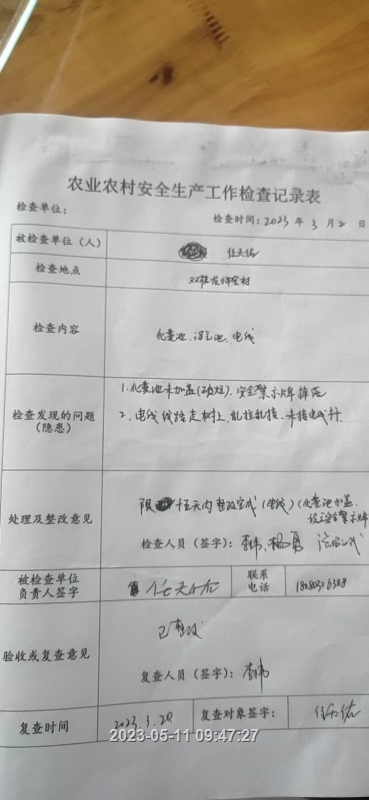 农业农村安全生产工作检查记录表
检查单位：
检查时间：2023 年 3 月 2 日
被检查单位（人） 任天佑
检查地点
检查内容 化粪池、沼气池、电线
检查发现的问题（隐患）
1.化粪池未加盖（破烂）.安全警示牌掉落
2.电线线路走树上,乱拉乱接.未接电线杆.
处理及整改意见
限 十五天内整改完成（电线）（化粪池加盖、
设立安全警示牌
检查人员（签字）：李伟、杨勇
被检查单位负责人签字 任天佑 联系电话
验收或复查意见
已整改
复查人员（签字）：李伟
复查时间 2023.3.20 复查对象签字： 任天佑
2023-05-11 09:47:27